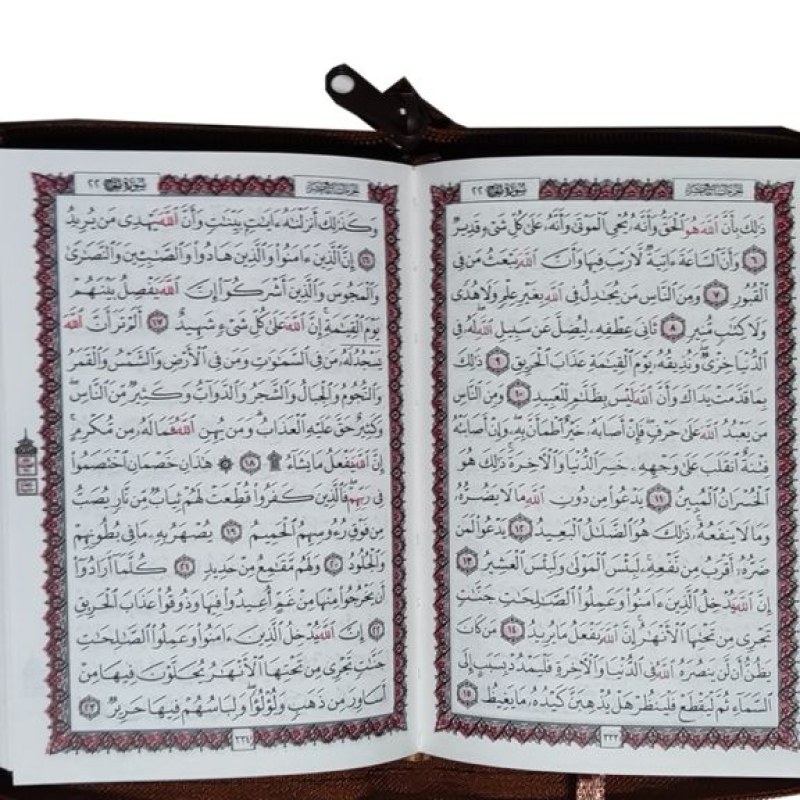 سورة الحج ٢٢
ذَٰلِكَ بِأَنَّ ٱللَّهَ هُوَ ٱلْحَقُّ وَأَنَّهُۥ يُحْىِ ٱلْمَوْتَىٰ وَأَنَّهُۥ عَلَىٰ كُلِّ شَىْءٍ قَدِيرٌ
٦ وَأَنَّ ٱلسَّاعَةَ ءَاتِيَةٌ لَّا رَيْبَ فِيهَا وَأَنَّ ٱللَّهَ يَبْعَثُ مَن فِى
ٱلْقُبُورِ ٧ وَمِنَ ٱلنَّاسِ مَن يُجَٰدِلُ فِى ٱللَّهِ بِغَيْرِ عِلْمٍ وَلَا هُدًى
وَلَا كِتَٰبٍ مُّنِيرٍ ٨ ثَانِىَ عِطْفِهِۦ لِيُضِلَّ عَن سَبِيلِ ٱللَّهِ لَهُۥ فِى
ٱلدُّنْيَا خِزْىٌ وَنُذِيقُهُۥ يَوْمَ ٱلْقِيَٰمَةِ عَذَابَ ٱلْحَرِيقِ ٩ ذَٰلِكَ
بِمَا قَدَّمَتْ يَدَاكَ وَأَنَّ ٱللَّهَ لَيْسَ بِظَلَّٰمٍ لِّلْعَبِيدِ ١٠ وَمِنَ ٱلنَّاسِ
مَن يَعْبُدُ ٱللَّهَ عَلَىٰ حَرْفٍ فَإِنْ أَصَابَهُۥ خَيْرٌ ٱطْمَأَنَّ بِهِۦ وَإِنْ أَصَابَتْهُ
فِتْنَةٌ ٱنقَلَبَ عَلَىٰ وَجْهِهِۦ خَسِرَ ٱلدُّنْيَا وَٱلْءَاخِرَةَ ذَٰلِكَ هُوَ
ٱلْخُسْرَانُ ٱلْمُبِينُ ١١ يَدْعُوا۟ مِن دُونِ ٱللَّهِ مَا لَا يَضُرُّهُۥ
وَمَا لَا يَنفَعُهُۥ ذَٰلِكَ هُوَ ٱلضَّلَٰلُ ٱلْبَعِيدُ ١٢ يَدْعُوا۟ لَمَن
ضَرُّهُۥٓ أَقْرَبُ مِن نَّفْعِهِۦ لَبِئْسَ ٱلْمَوْلَىٰ وَلَبِئْسَ ٱلْعَشِيرُ ١٣
إِنَّ ٱللَّهَ يُدْخِلُ ٱلَّذِينَ ءَامَنُوا۟ وَعَمِلُوا۟ ٱلصَّٰلِحَٰتِ جَنَّٰتٍ
تَجْرِى مِن تَحْتِهَا ٱلْأَنْهَٰرُ إِنَّ ٱللَّهَ يَفْعَلُ مَا يُرِيدُ ١٤ مَن كَانَ
يَظُنُّ أَن لَّن يَنصُرَهُ ٱللَّهُ فِى ٱلدُّنْيَا وَٱلْءَاخِرَةِ فَلْيَمْدُدْ بِسَبَبٍ إِلَى
ٱلسَّمَآءِ ثُمَّ لْيَقْطَعْ فَلْيَنظُرْ هَلْ يُذْهِبَنَّ كَيْدُهُۥ مَا يَغِيظُ ١٥
٣٣٣
سورة الحج ٢٢
وَكَذَٰلِكَ أَنزَلْنَٰهُ ءَايَٰتٍۭ بَيِّنَٰتٍ وَأَنَّ ٱللَّهَ يَهْدِى مَن يُرِيدُ
١٦ إِنَّ ٱلَّذِينَ ءَامَنُوا۟ وَٱلَّذِينَ هَادُوا۟ وَٱلصَّٰبِـِٔينَ وَٱلنَّصَٰرَىٰ
وَٱلْمَجُوسَ وَٱلَّذِينَ أَشْرَكُوٓا۟ إِنَّ ٱللَّهَ يَفْصِلُ بَيْنَهُمْ
يَوْمَ ٱلْقِيَٰمَةِ إِنَّ ٱللَّهَ عَلَىٰ كُلِّ شَىْءٍ شَهِيدٌ ١٧ أَلَمْ تَرَ أَنَّ ٱللَّهَ
يَسْجُدُ لَهُۥ مَن فِى ٱلسَّمَٰوَٰتِ وَمَن فِى ٱلْأَرْضِ وَٱلشَّمْسُ وَٱلْقَمَرُ
وَٱلنُّجُومُ وَٱلْجِبَالُ وَٱلشَّجَرُ وَٱلدَّوَآبُّ وَكَثِيرٌ مِّنَ ٱلنَّاسِ
وَكَثِيرٌ حَقَّ عَلَيْهِ ٱلْعَذَابُ وَمَن يُهِنِ ٱللَّهُ فَمَا لَهُۥ مِن مُّكْرِمٍ
إِنَّ ٱللَّهَ يَفْعَلُ مَا يَشَآءُ ۩ ١٨ ۞ هَٰذَانِ خَصْمَانِ ٱخْتَصَمُوا۟
فِى رَبِّهِمْ فَٱلَّذِينَ كَفَرُوا۟ قُطِّعَتْ لَهُمْ ثِيَابٌ مِّن نَّارٍ يُصَبُّ
مِن فَوْقِ رُءُوسِهِمُ ٱلْحَمِيمُ ١٩ يُصْهَرُ بِهِۦ مَا فِى بُطُونِهِمْ
وَٱلْجُلُودُ ٢٠ وَلَهُم مَّقَٰمِعُ مِنْ حَدِيدٍ ٢١ كُلَّمَآ أَرَادُوٓا۟
أَن يَخْرُجُوا۟ مِنْهَا مِنْ غَمٍّ أُعِيدُوا۟ فِيهَا وَذُوقُوا۟ عَذَابَ ٱلْحَرِيقِ
٢٢ إِنَّ ٱللَّهَ يُدْخِلُ ٱلَّذِينَ ءَامَنُوا۟ وَعَمِلُوا۟ ٱلصَّٰلِحَٰتِ
جَنَّٰتٍ تَجْرِى مِن تَحْتِهَا ٱلْأَنْهَٰرُ يُحَلَّوْنَ فِيهَا مِنْ
أَسَاوِرَ مِن ذَهَبٍ وَلُؤْلُؤًا وَلِبَاسُهُمْ فِيهَا حَرِيرٌ ٢٣
٣٣٤